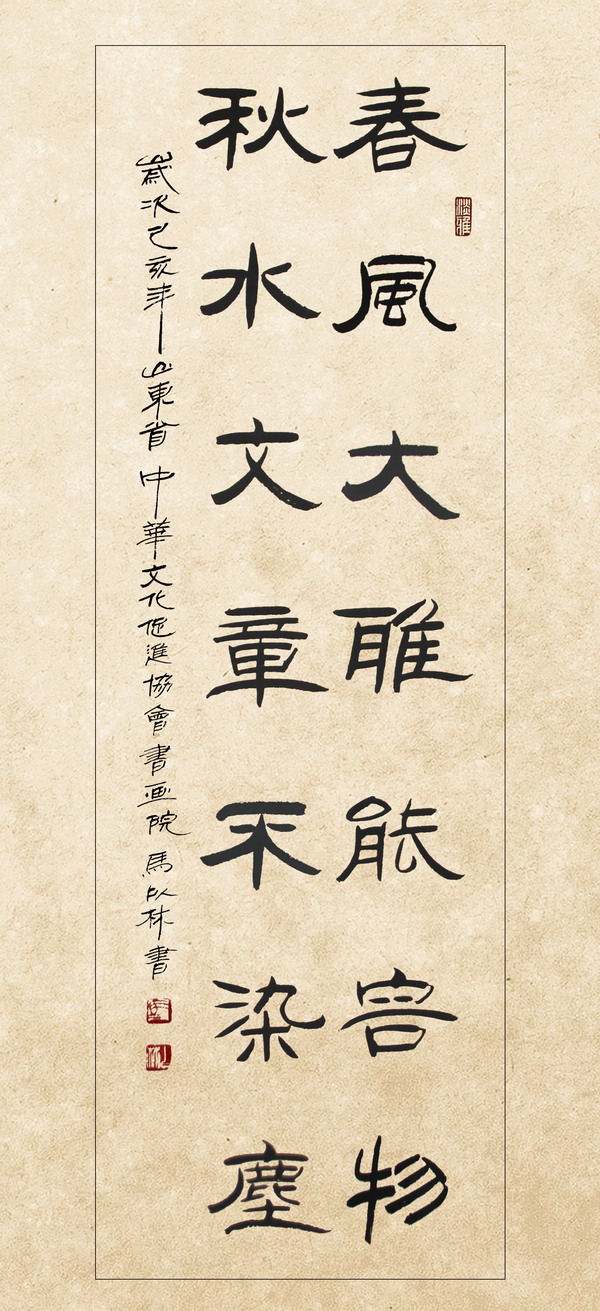 春風大雅能容物
淡雅
秋水文章不染塵
歲次己亥年山東省中華文化促進協會書画院馬以林書